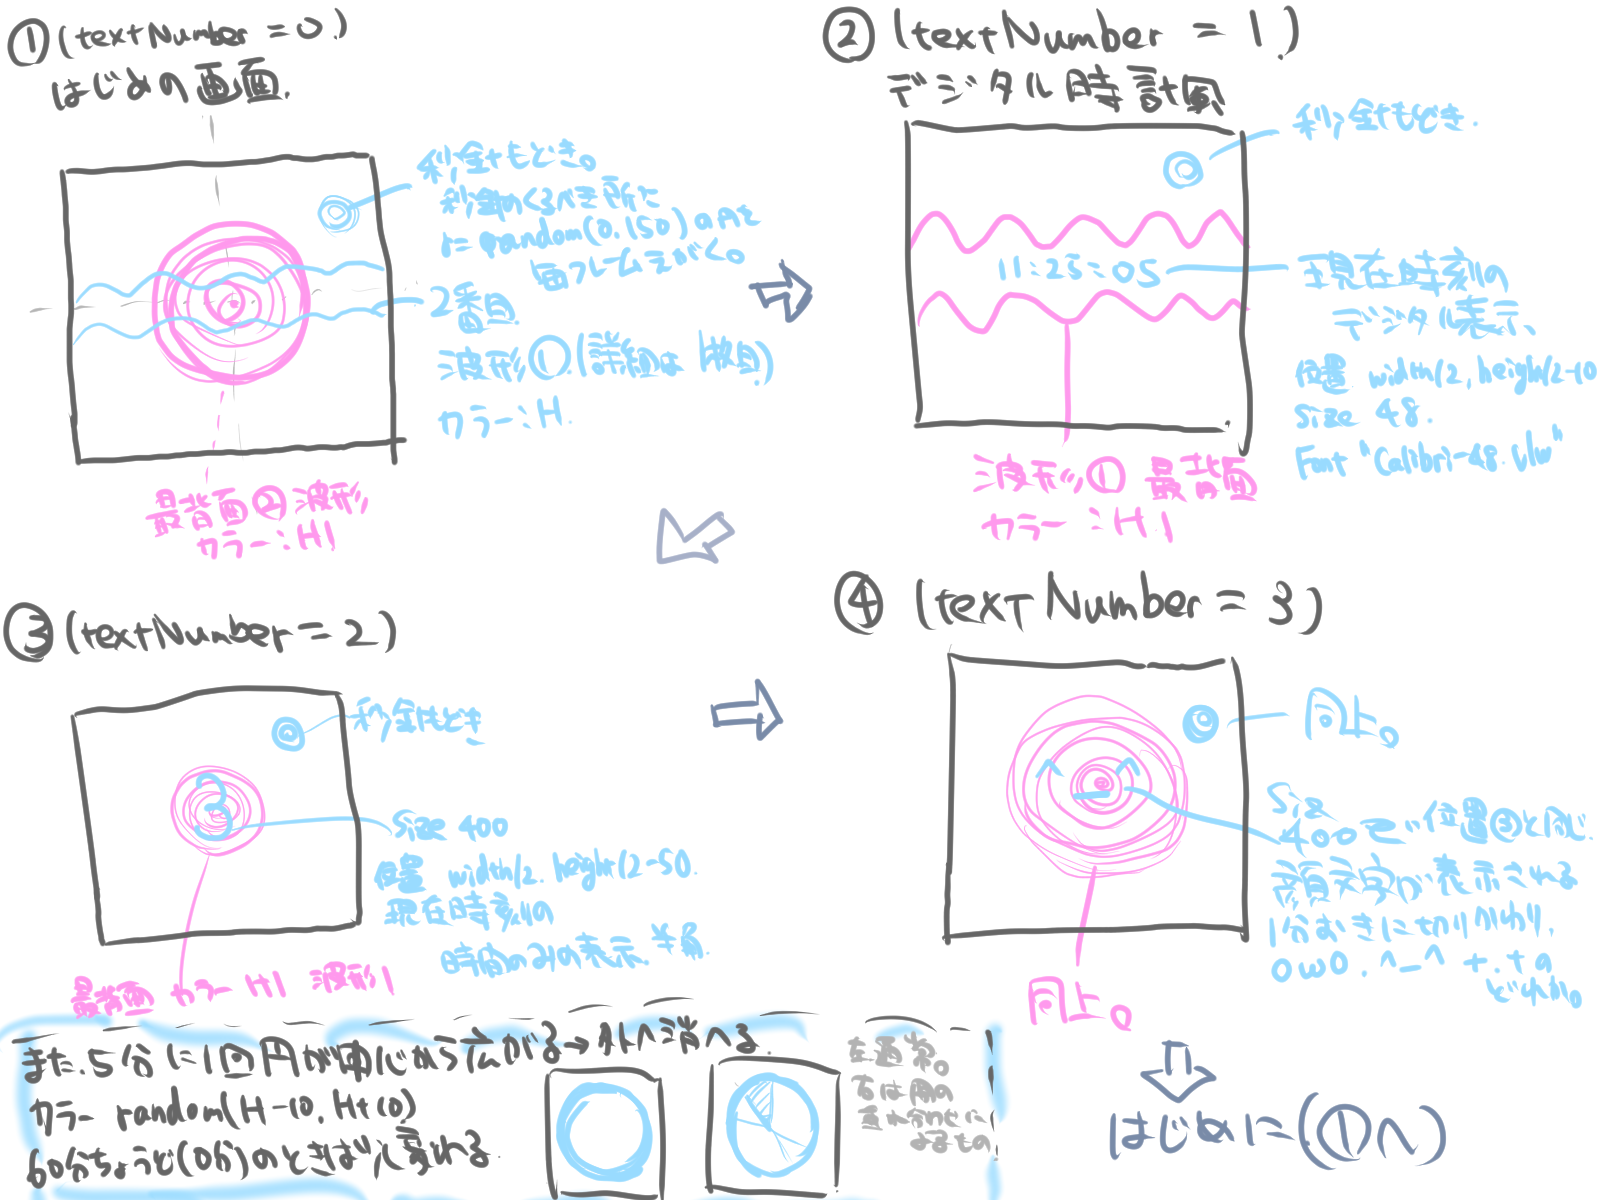 ① (textNumber = 0.)
はじめの画面.
秒針もどき。
秒針のくるべき所に
r = random(0.150)の円を
毎フレームえがく。
2番目
波形①.(詳細は1枚目)
カラー:H.
最背面②波形
カラー:H1
② (textNumber = 1.)
デジタル時計風
秒針もどき.
11:25:05
現在時刻の
デジタル表示、
位置 width/2, height/2-10
Size 48.
Font "Calibri-48.vlw"
波形① 最背面
カラー:H1
③ (textNumber = 2)
秒針もどき
3
Size 400
位置 width/2. height/2-50.
現在時刻の
時間のみの表示. 半角.
最背面 カラー H1 波形1
④ (textNumber = 3)
同上。
^_^
Siz
400で位置③と同じ.
顔文字が表示される
1分おきに切りかわり.
OwO. ^_^ +.+の
どれか。
同上。
また.5分に1回円が中心から広がる→外へ消へる.
カラー random(H-10. H+10)
60分ちょうど(0分)のときは変われる.
左通常。
右は円の
重ね合わせに
よるもの
はじめに(①へ)